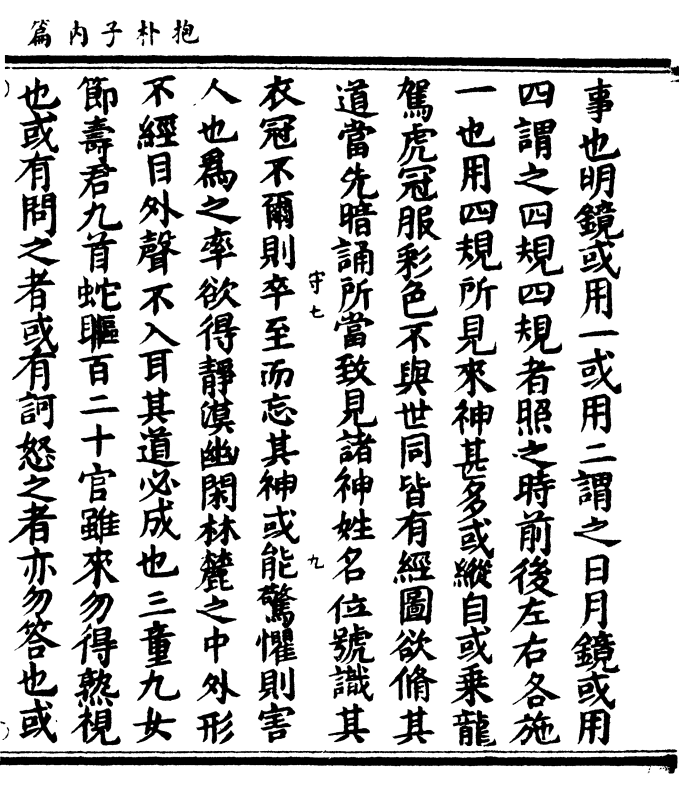 抱朴子內篇
事也明鏡或用一或用二謂之日月鏡或用
四謂之四規四規者照之時前後左右各施
一也用四規所見來神甚多或縱自或乘龍
駕虎冠服彩色不與世同皆有經圖欲脩其
道當先暗誦所當致見諸神姓名位號識其
守七
九
衣冠不爾則卒至而忘其神或能驚懼則害
人也爲之率欲得靜漠幽閑林麓之中外形
不經目外聲不入耳其道必成也三童九女
節壽君九首蛇軀百二十官雖來勿得熟視
也或有問之者或有訶怒之者亦勿答也或